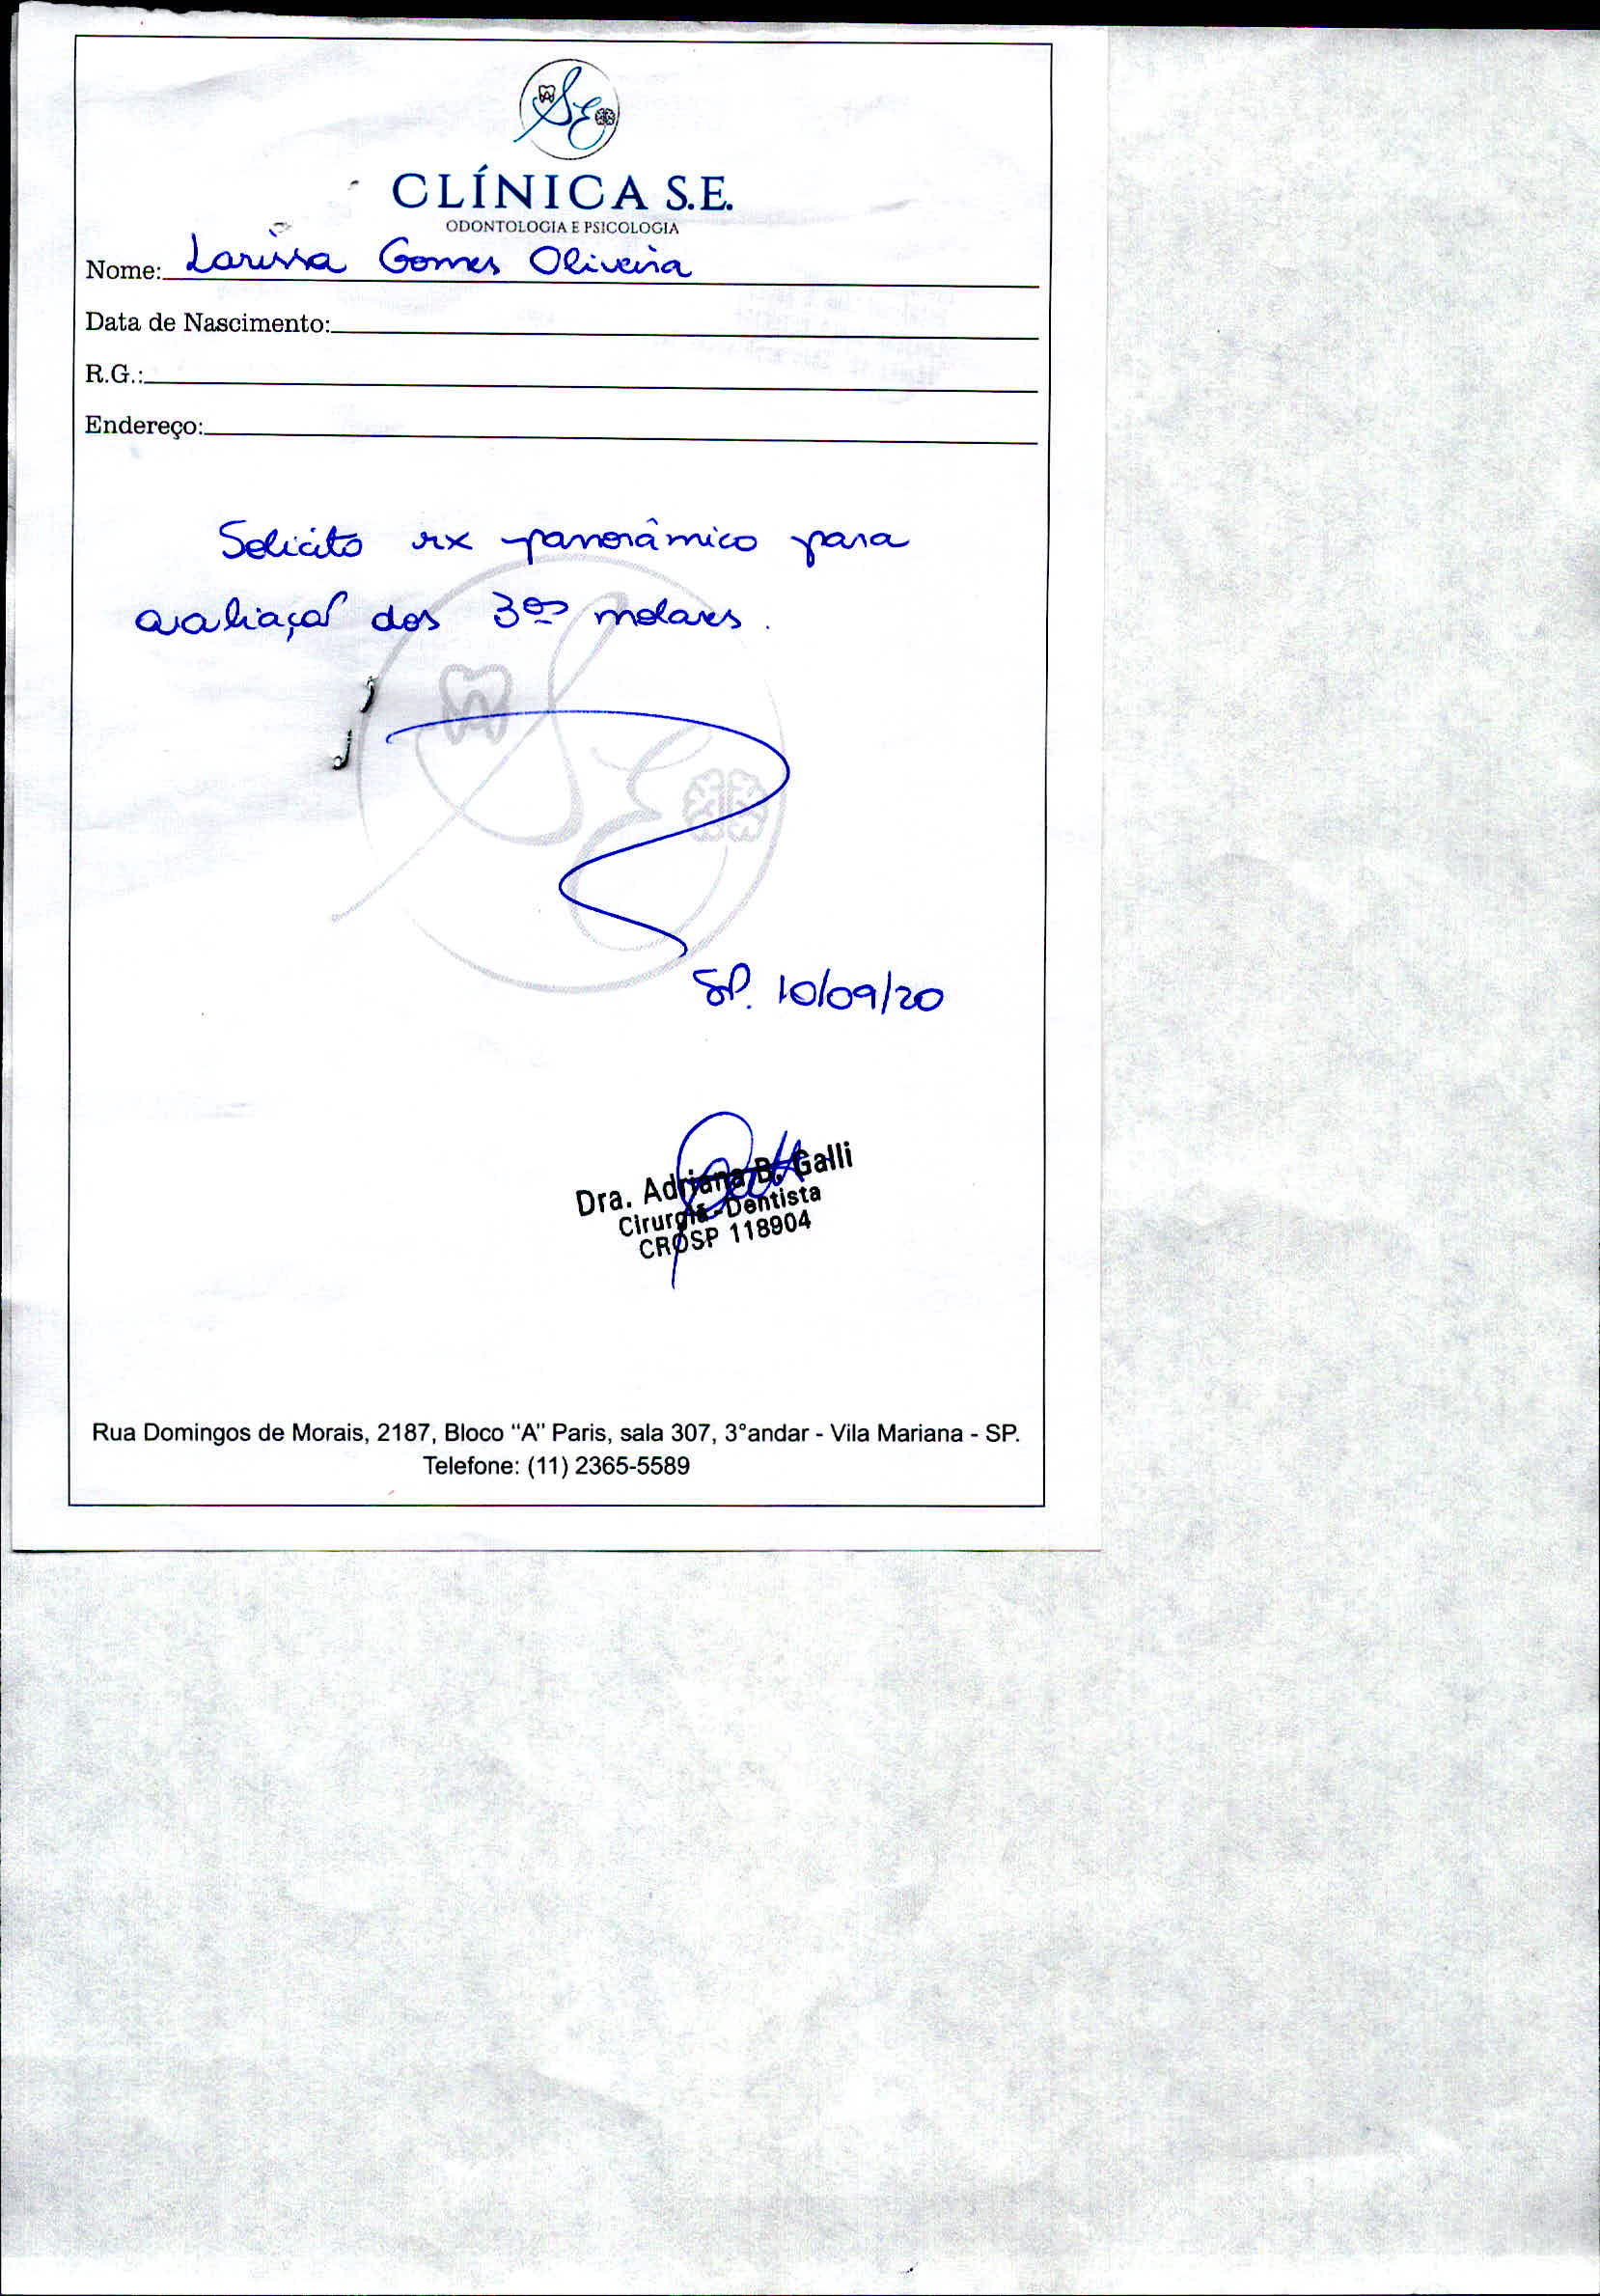 SE
CLÍNICA S.E.
ODONTOLOGIA E PSICOLOGIA
Nome: Larissa Gomes Oliveira
Data de Nascimento:
R.G.:
Endereço:
Solicito rx panorâmico para
avaliação dos 3os molares.
SE
SP. 10/09/20
Dra. Adriana B. Galli
Cirurgiã-Dentista
CROSP 118904
Rua Domingos de Morais, 2187, Bloco "A" Paris, sala 307, 3°andar - Vila Mariana - SP.
Telefone: (11) 2365-5589